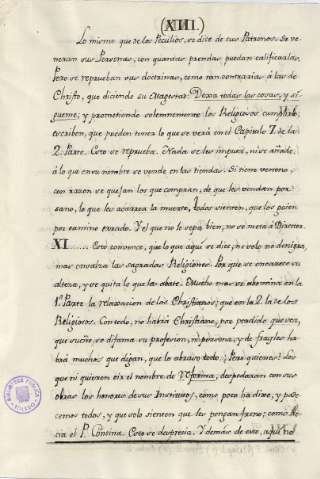 (XIII.)
Lo mismo que de los Peculios, se dice de sus Patronos. Se ve-
neran sus Personas, con quantas prendas puedan calificarlas.
Pero se reprueban sus doctrinas, como tan contrarias á las de
Christo, que diciendo su Magestad: Dexa todas las cosas, y
sigueme; y prometiendo solemnemente los Religiosos cumplirlo;
escriben, que pueden tener lo que se verá en el Capitulo 7. de la
2. Parte. Esto se reprueba. Nada se les impone, ni se añade,
á lo que en su nombre se vende en las tiendas. Si tiene veneno,
con razon se quejan los que compran, de que les vendan por
sano, lo que les acarrea la muerte. Todos sienten, que los guien
por camino errado. Y el que no le sepa bien, no se meta á Director.
XI..... Esto convence, que lo que aqui se dice, no solo no denigra,
mas ensalza las sagradas Religiones. Por que se enera su
alteza, y se quita lo que las abate. Mucho mas se abomina en la
1ª. Parte la relaxacion de los Christianos; que en la 2. la de los
Religiosos. Con todo, no habrá Christiano, por perdido que sea,
que sueñe, se difama su profesion, ni persona; y de frayles
habrá muchos que digan, que lo abraso todo. ¿Pero quienes? Los
que ni quieren oir el nombre de Reforma, despedazan con sus
obras los honores de sus Institutos, como poco ha dixe, y pade-
cemos todos, y que solo sienten que les pongan freno; como
el P. Contina. Esto se desprecia. Y demás de esto, aqui no
BIBLIOTECA PUBLICA
TOLEDO